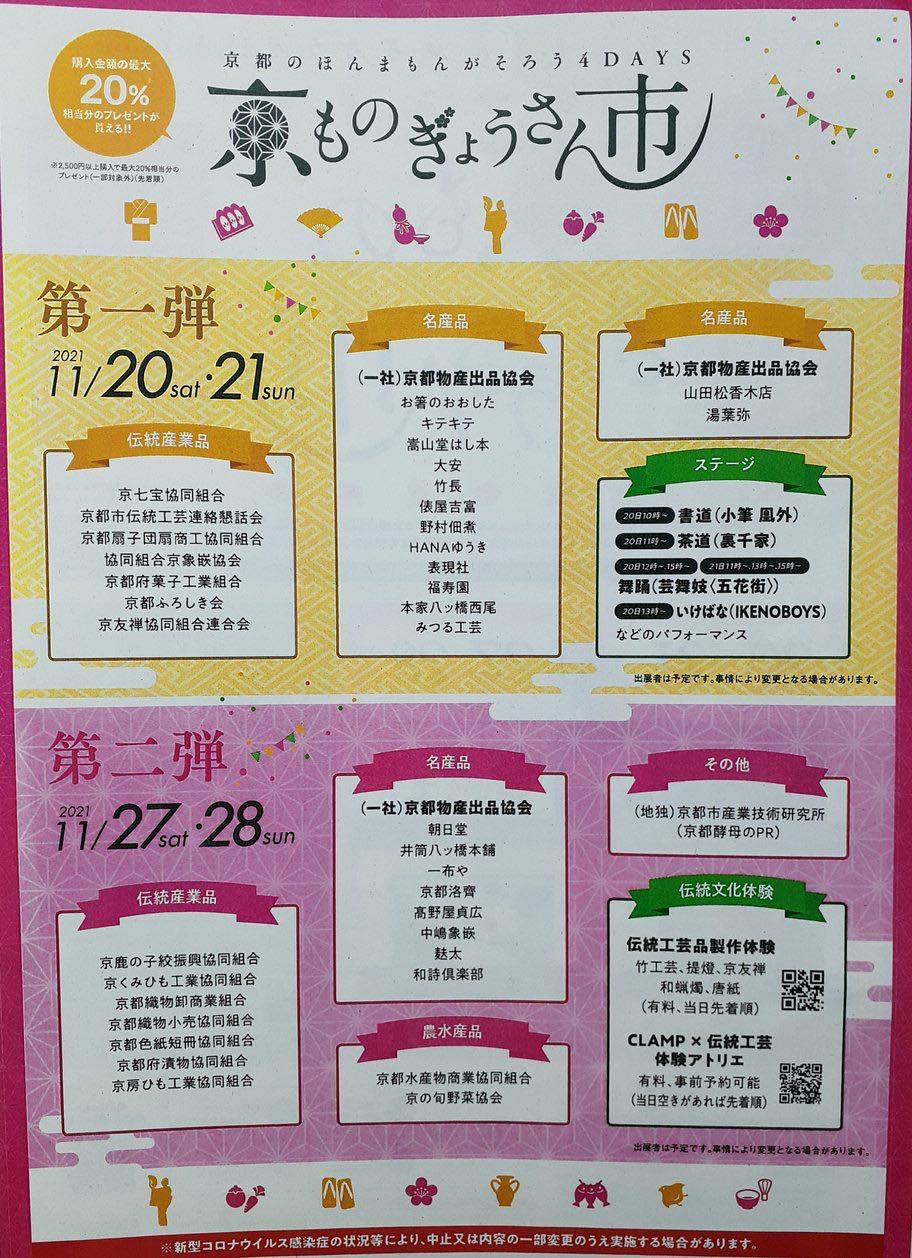 購入金額の最大
20%
相当分のプレゼントが
貰える!!
※2,500円以上購入で最大20%相当分の
プレゼント(一部対象外)(先着順)
京都のほんまもんがそろう4DAYS
京ものぎょうさん市
第一弾
2021
11/20sat・21sun
伝統産業品
京七宝協同組合
京都市伝統工芸連絡懇話会
京都扇子団扇商工協同組合
協同組合京象嵌協会
京都府菓子工業組合
京都ふろしき会
京友禅協同組合連合会
名産品
(一社)京都物産出品協会
お箸のおおした
キテキテ
嵩山堂はし本
大安
竹長
俵屋吉富
野村佃煮
HANAゆうき
表現社
福寿園
本家八ッ橋西尾
みつる工芸
名産品
(一社)京都物産出品協会
山田松香木店
湯葉弥
ステージ
20日10時~ 書道(小筆 凰外)
20日11時~ 茶道(裏千家)
20日12時~、15時~ 21日11時~、13時~、15時~
舞踊(芸舞妓〈五花街〉)
20日13時~ いけばな(IKENOBOYS)
などのパフォーマンス
出展者は予定です。事情により変更となる場合があります。
第二弾
2021
11/27sat・28sun
伝統産業品
京鹿の子絞振興協同組合
京くみひも工業協同組合
京都織物卸商業組合
京都織物小売協同組合
京都色紙短冊協同組合
京都府漬物協同組合
京房ひも工業協同組合
名産品
(一社)京都物産出品協会
朝日堂
井筒八ッ橋本舗
一布や
京都洛齊
髙野屋貞広
中嶋象嵌
麩太
和詩倶楽部
農水産品
京都水産物商業協同組合
京の旬野菜協会
その他
(地独)京都市産業技術研究所
(京都酵母のPR)
伝統文化体験
伝統工芸品製作体験
竹工芸、提燈、京友禅
和蝋燭、唐紙
(有料、当日先着順)
CLAMP×伝統工芸
体験アトリエ
有料、事前予約可能
(当日空きがあれば先着順)
出展者は予定です。事情により変更となる場合があります。
※新型コロナウイルス感染症の状況等により、中止又は内容の一部変更のうえ実施する場合があります。